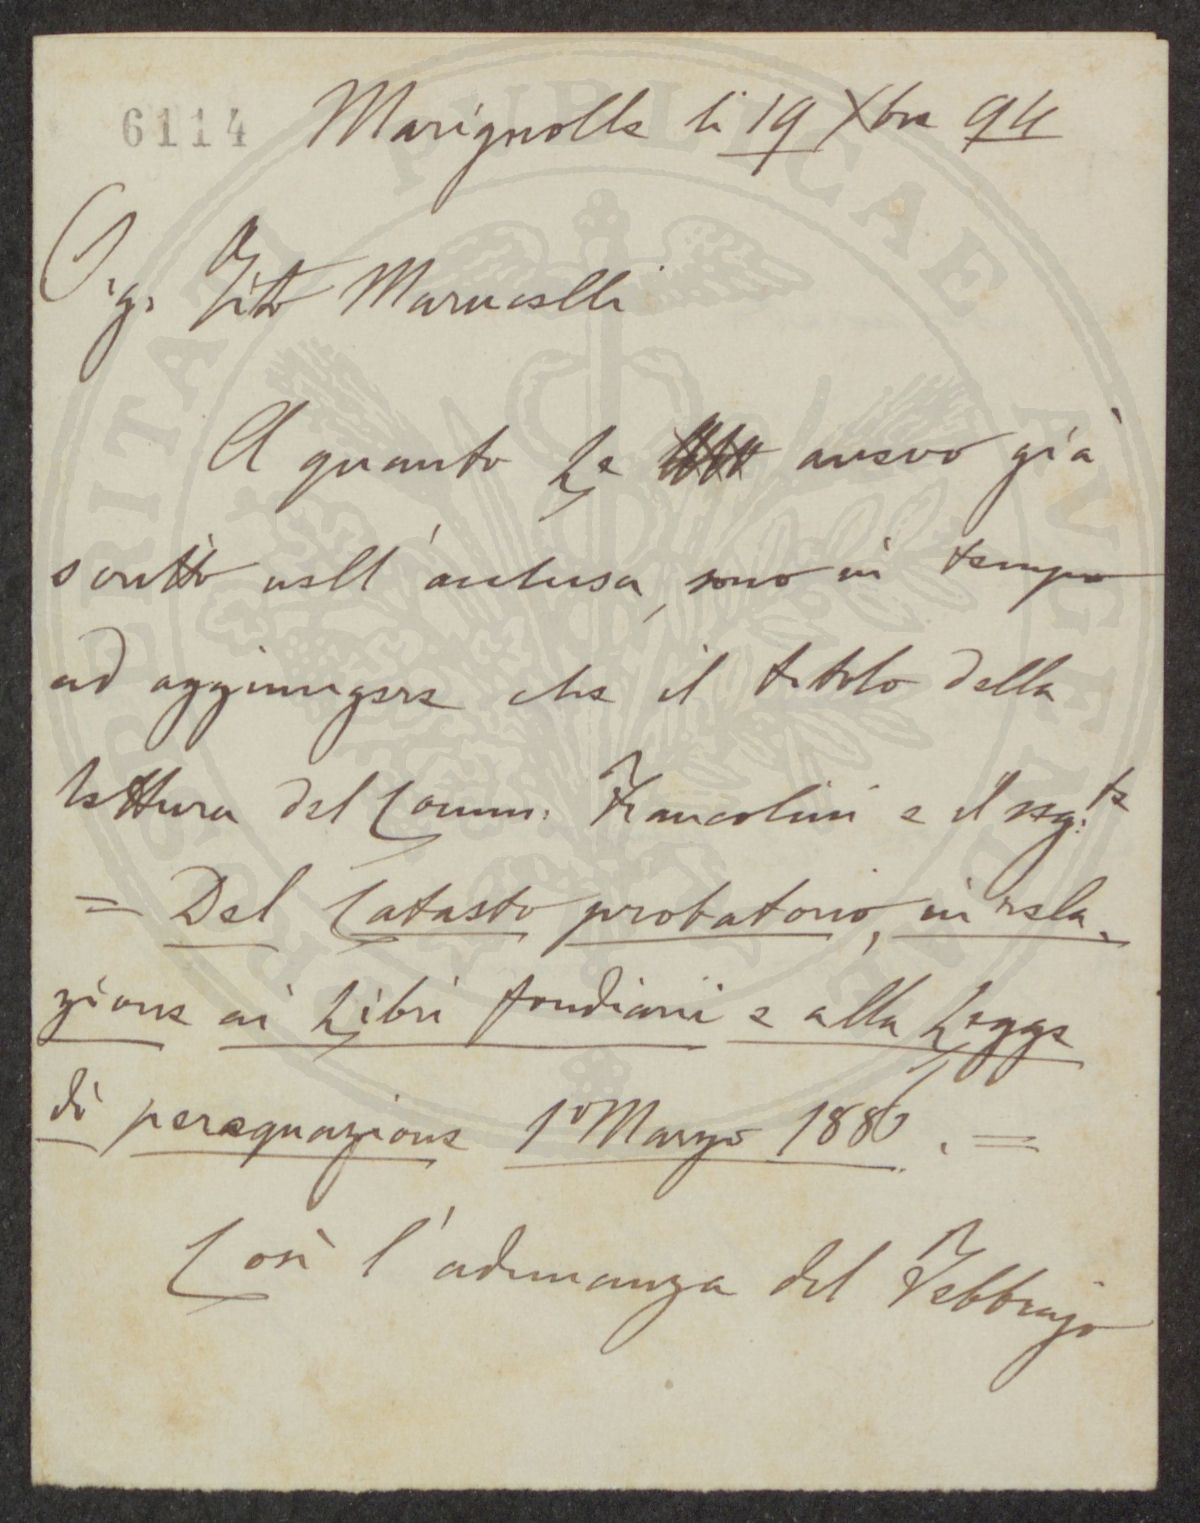 6114 Marignolle li 19 Xbre 94
Sig. Tito Marucelli
A quanto Le avevo già
scritto nell'acclusa, sono in tempo
ad aggiungere che il titolo della
lettura del Comm. Francolini e il seg.te
= Del Catasto probatorio, in rela-
zione ai Libri fondiarii e alla Legge
di perequazione 1o Marzo 1886. =
Così l'adunanza del Febbrajo
PROSPERITATE PUBLICAE AUGENDAE